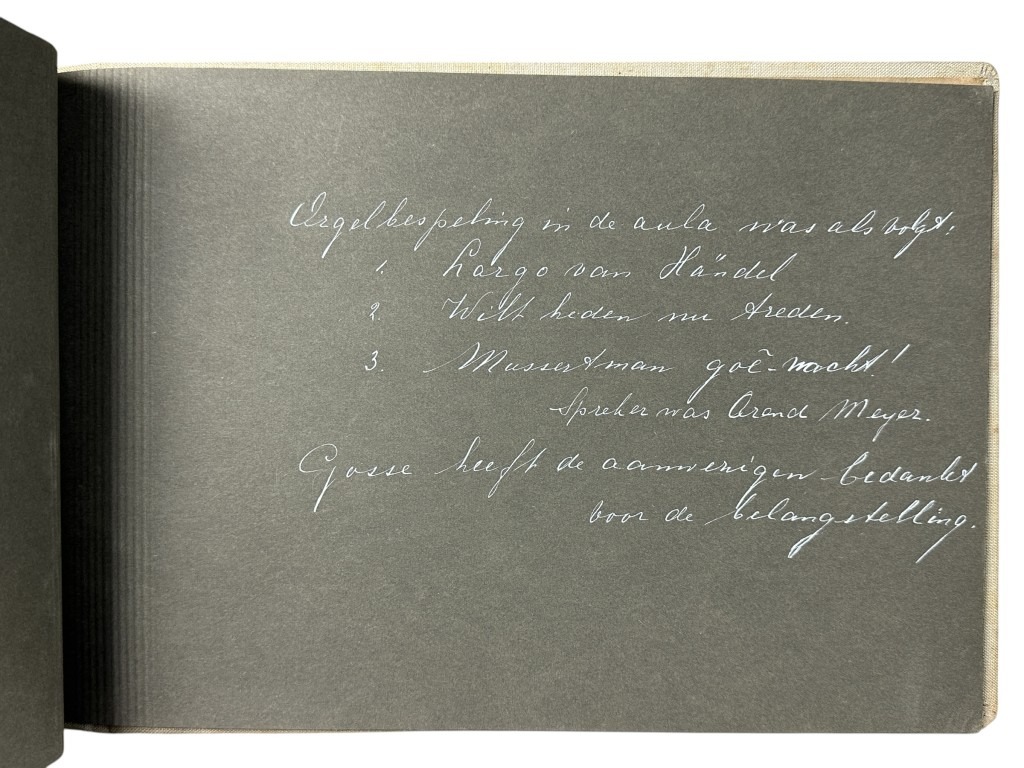 Orgelbespeling in de aula was als volgt:
1. Largo van Händel
2. Wilt heden nu treden.
3. Mussertman goê-nacht!
Spreker was Arend Meyer.
Gosse heeft de aanwezigen bedankt
voor de belangstelling.